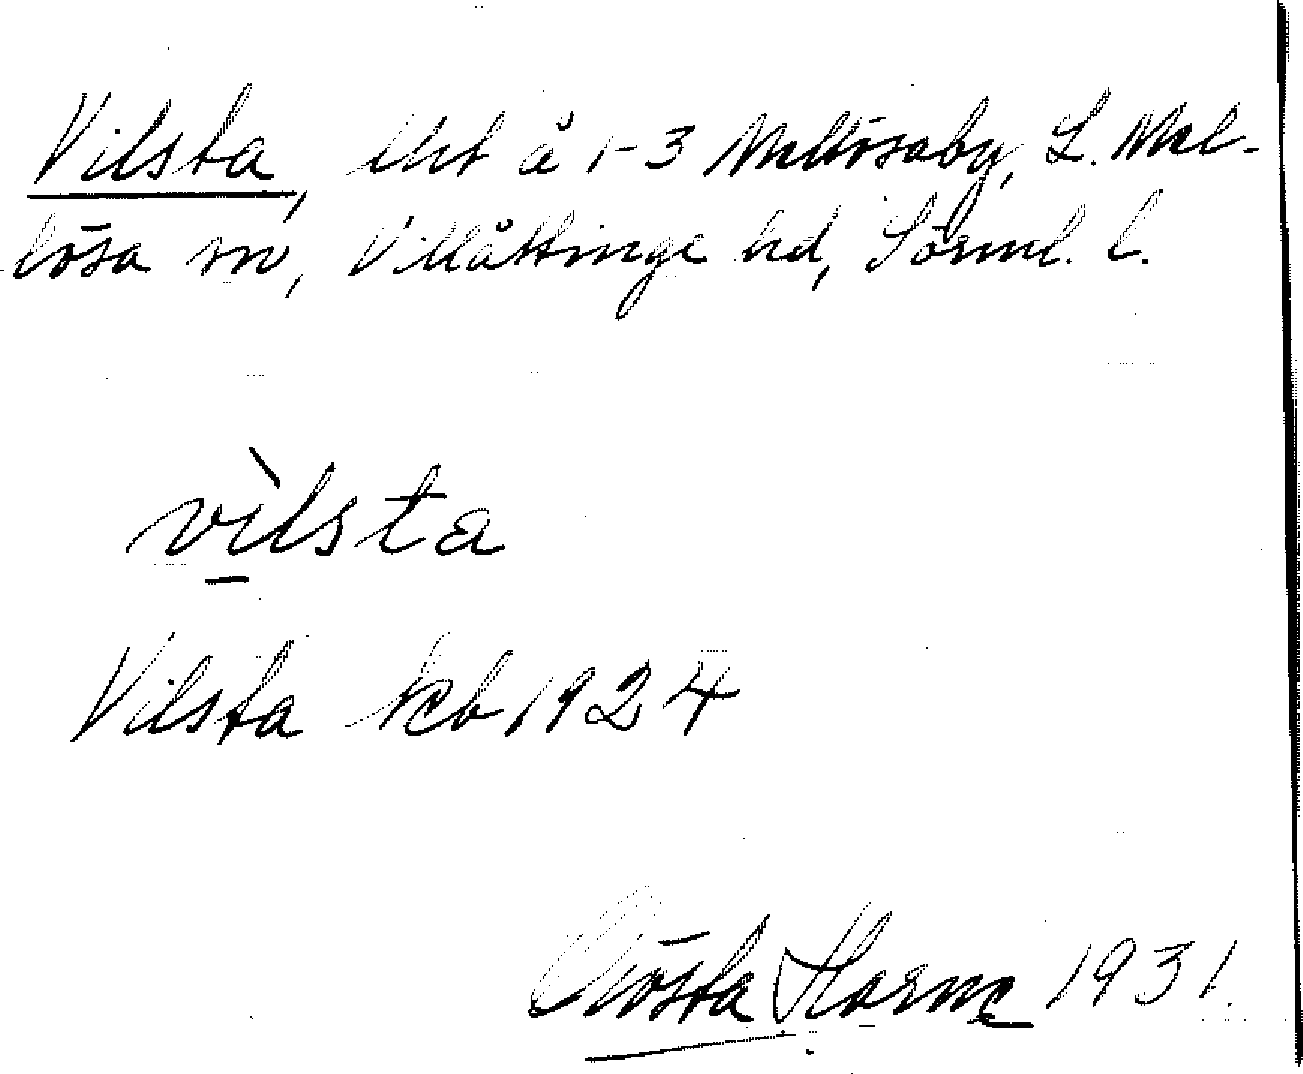 Vilsta, lht å 1-3 Mellösaby, L. Mel-
lösa sn, Villåttinge hd, Sörml. l.
vìlsta
Vilsta kcb 1924
Gösta 1931.